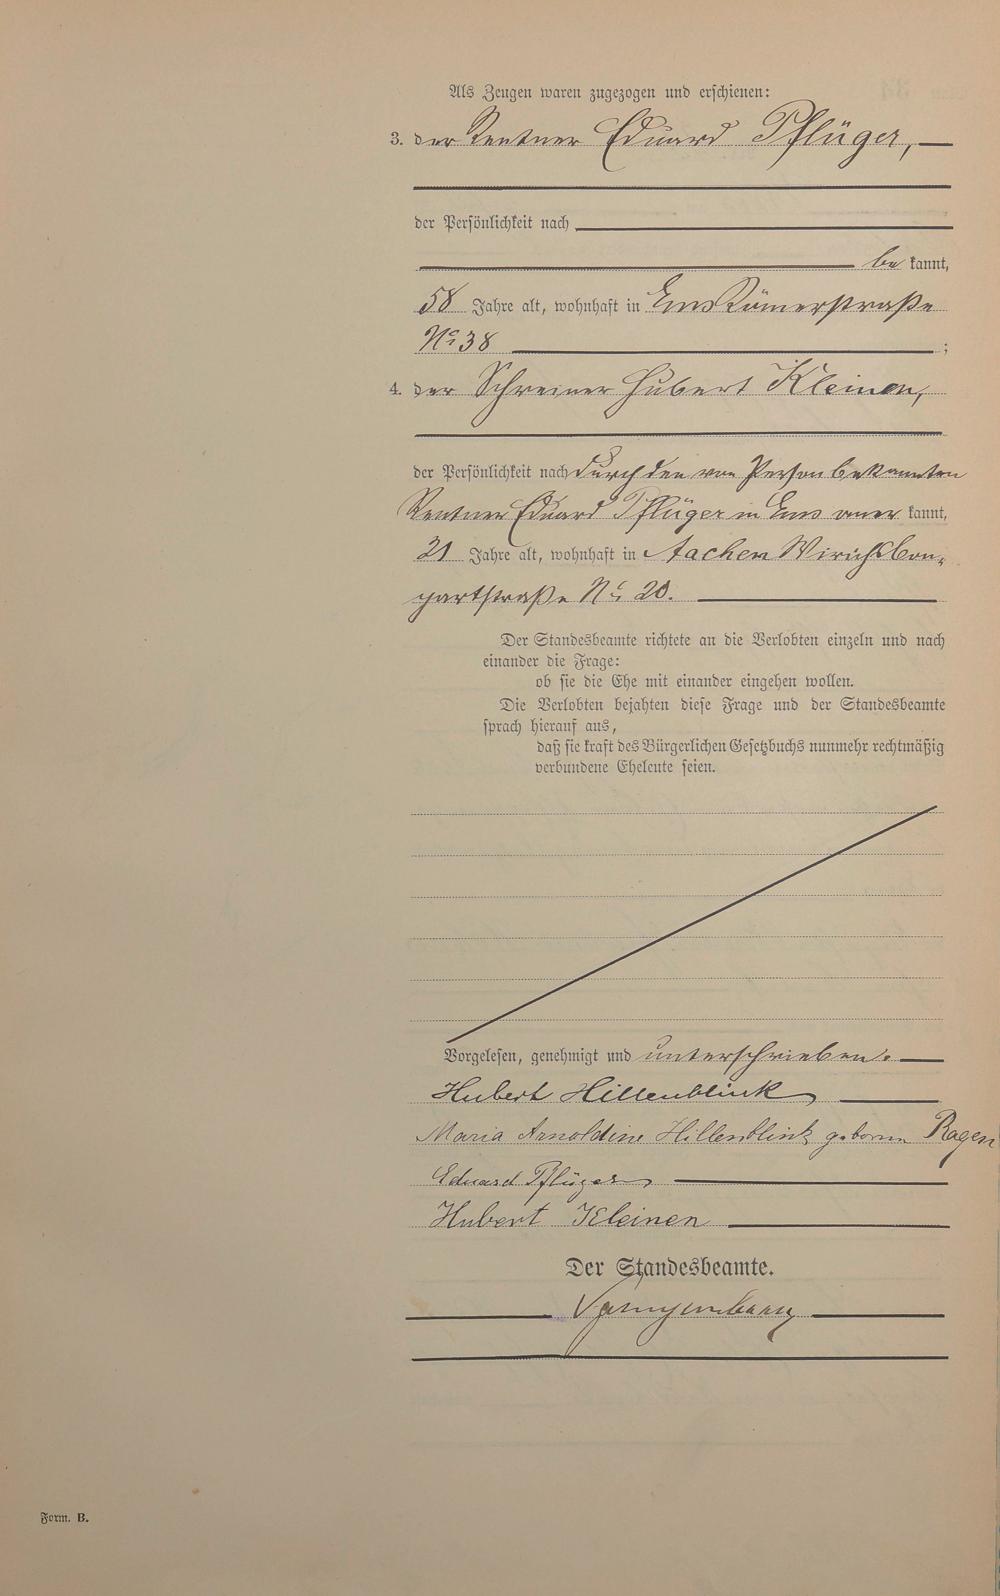 Als Zeugen waren zugezogen und erschienen:
3. der Rentner Eduard Pflüger,
der Persönlichkeit nach
be kannt,
58 Jahre alt, wohnhaft in Ems Römerstraße
No 38 ;
4. der Schreiner Hubert Kleinen,
der Persönlichkeit nach durch den von Person bekannten
Rentner Eduard Pflüger in Ems aner kannt,
21 Jahre alt, wohnhaft in Aachen Wirichsbon-
gartstraße No 20.
Der Standesbeamte richtete an die Verlobten einzeln und nach
einander die Frage:
ob sie die Ehe mit einander eingehen wollen.
Die Verlobten bejahten diese Frage und der Standesbeamte
sprach hierauf aus,
daß sie kraft des Bürgerlichen Gesetzbuchs nunmehr rechtmäßig
verbundene Eheleute seien.
Vorgelesen, genehmigt und unterschrieben.
Hubert Hillenblink
Maria Arnoldine Hillenblink geboren Ragen
Eduard Pflüger
Hubert Kleinen
Der Standesbeamte.
Form. B.